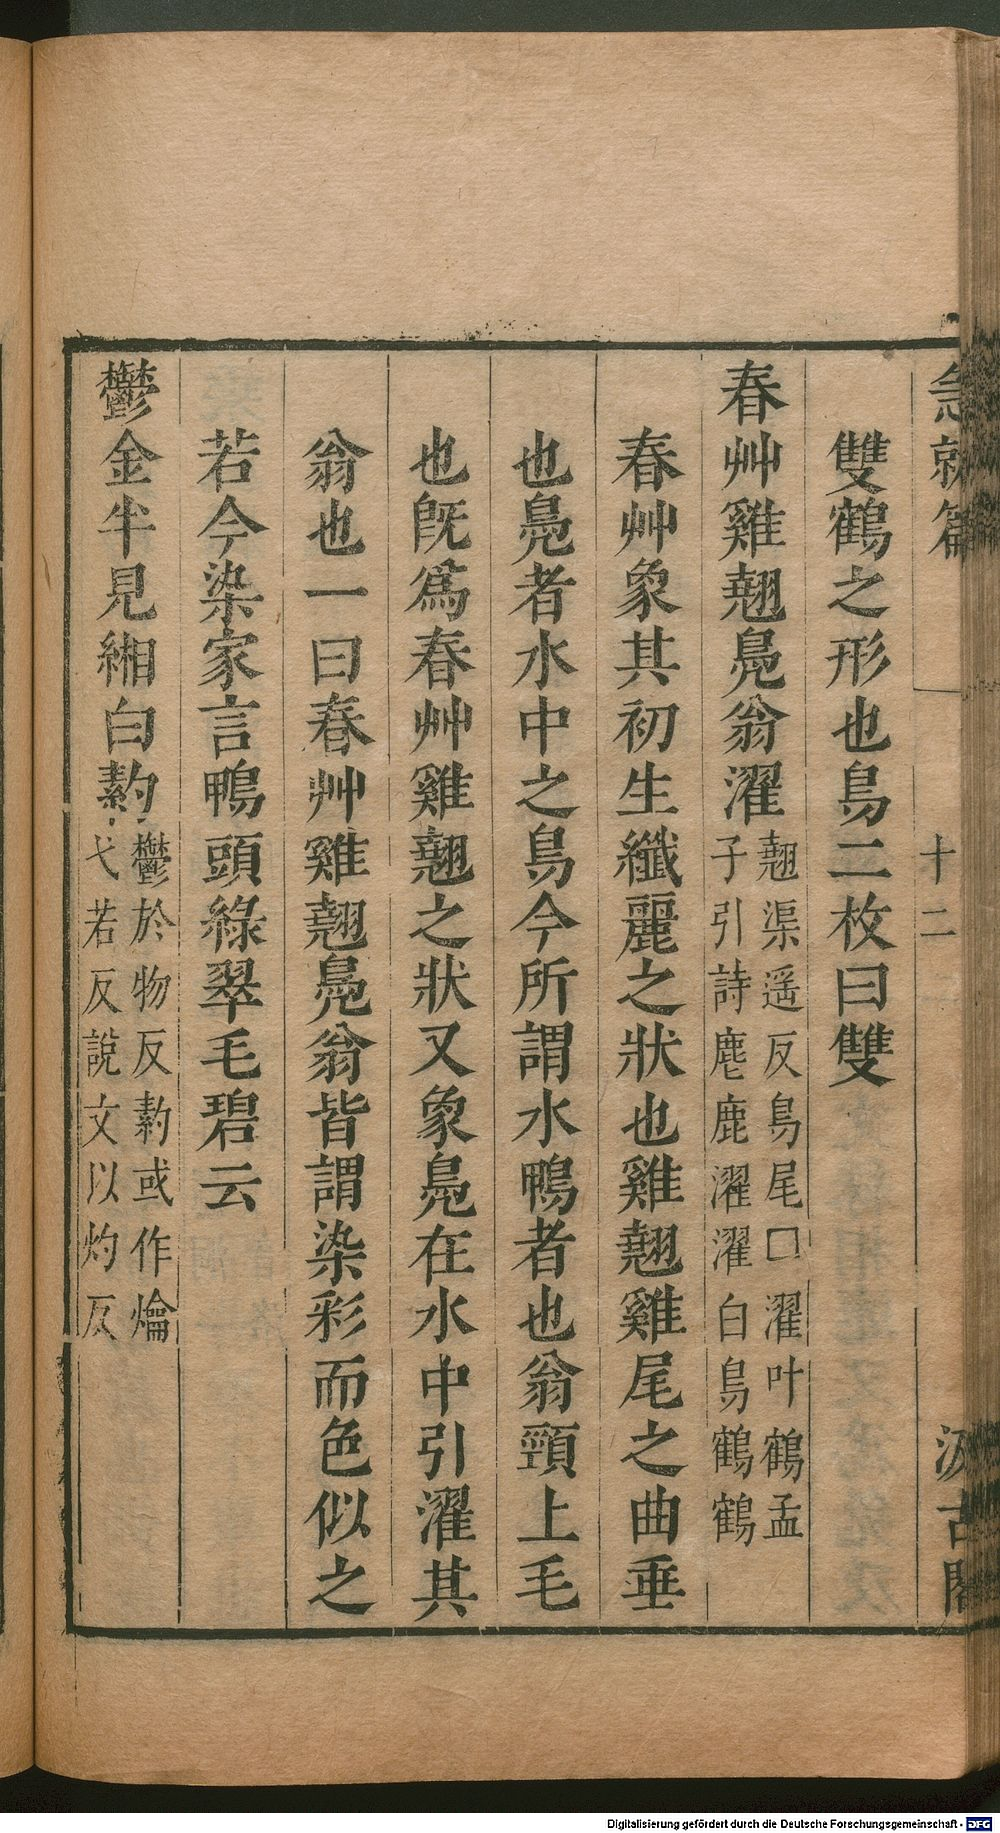 急就篇 十二 汲古閣
雙鶴之形也鳥二枚曰雙
春艸雞翹鳧翁濯翹渠遥反鳥尾口濯叶鶴孟
子引詩麀鹿濯濯白鳥鶴鶴
春艸象其初生纖麗之狀也雞翹雞尾之曲垂
也鳧者水中之鳥今所謂水鴨者也翁頸上毛
也旣爲春艸雞翹之狀又象鳧在水中引濯其
翁也一曰春艸雞翹鳧翁皆謂染彩而色似之
若今染家言鴨頭綠翠毛碧云
鬱金半見緗白䋤鬱於物反䋤或作爚
弋若反說文以灼反
Digitalisierung gefördert durch die Deutsche Forschungsgemeinschaft - DFG